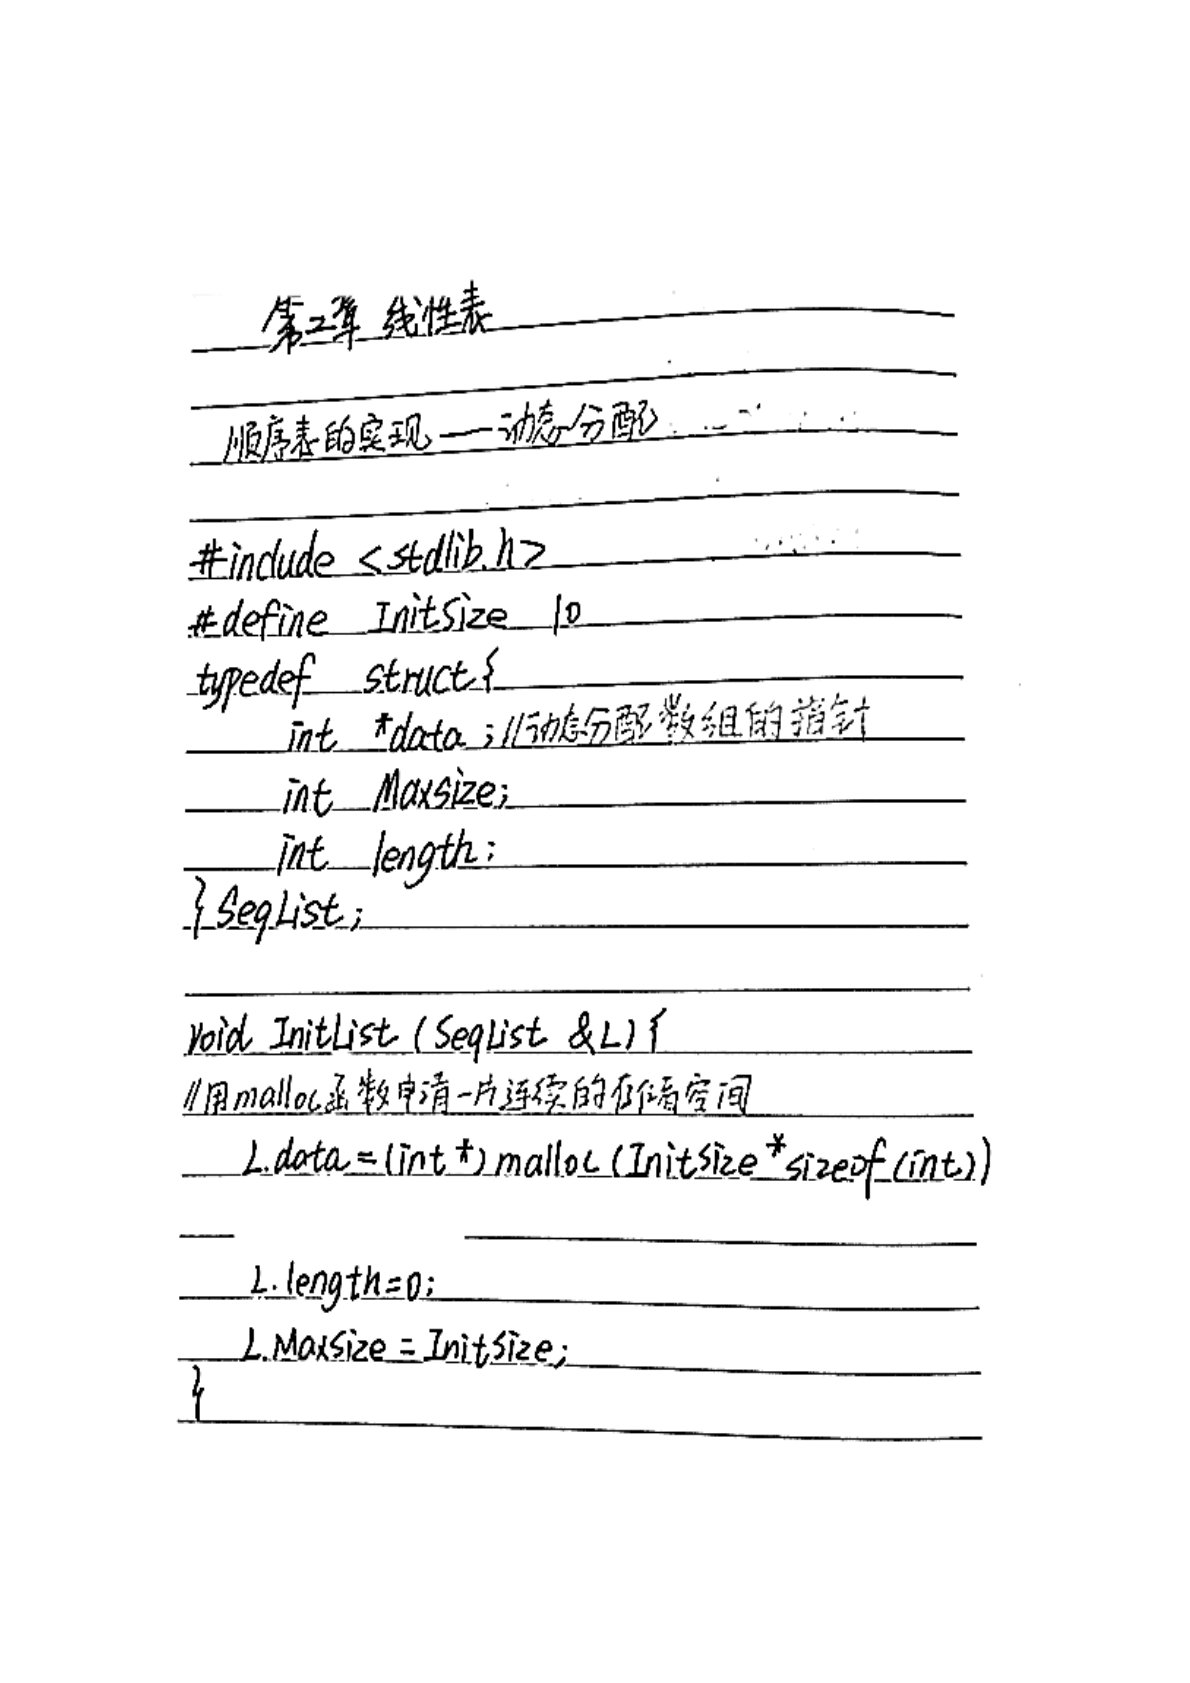 第二章 线性表
顺序表的实现——动态分配
#include <stdlib.h>
#define InitSize 10
typedef struct{
int *data;//动态分配数组的指针
int Maxsize;
int length;
}SeqList;
void InitList (SeqList &L){
//用malloc函数申请一片连续的存储空间
L.data=(int*)malloc(InitSize*sizeof(int))
L.length=0;
L.Maxsize=InitSize;
}